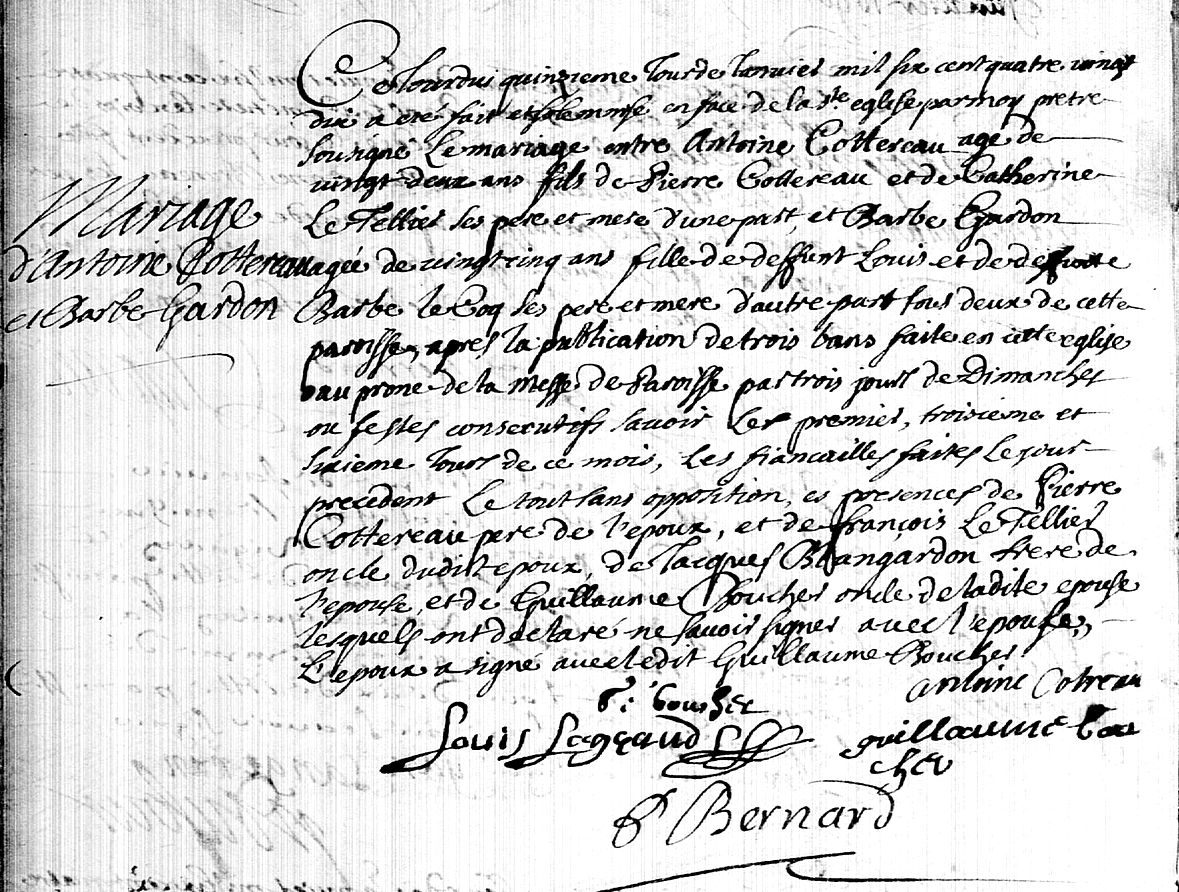 Mariage
d'Antoine Cottereau
et Barbe Gardon
Ce Iourdui quinzieme Iour de Ianvier mil six cent quatre vingt
dix a ete fait et solemnisé en face de la Ste eglise par moy pretre
sousigné Le mariage entre Antoine Cottereau agé de
vingt deux ans fils de Pierre Cottereau et de Catherine
Le Tellier ses pere et mere d'une part, et Barbe Gardon
agée de vingt cinq ans fille de deffunt Louis et de deffunte
Barbe le Coq ses pere et mere d'autre part tous deux de cette
paroisse, apres la publication de trois bans faite en cette eglise
au prone de la Messe de Paroisse par trois jours de Dimanches
ou festes consecutifs savoir Les premier, troisieme et
sixieme Iours de ce mois, Les fiancailles faites Le jour
precedent Le tout sans opposition, es presences de Pierre
Cottereau pere de l'epoux, et de françois Le Tellier
oncle dudit epoux, de Iacques Blangardon frere de
l'epouse, et de Guillaume Boucher oncle de ladite epouse
lesquels ont declaré ne savoir signer avec l'epouse,
L'epoux a signé avec ledit Guillaume Boucher
antoine Cotreau
boucher
Louis guillaume bou
cher
Bernard